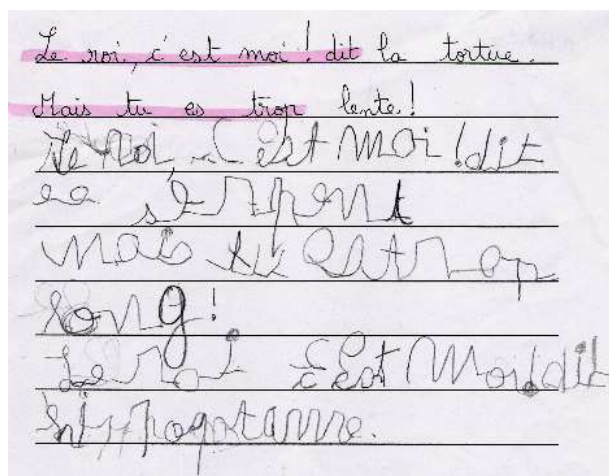 Le roi, c'est moi ! dit la tortue.
Mais tu es trop lente !
Le roi, c'est moi ! dit
le sérpent
mais tu est trop
long !
Le roi c'est Moi ! dit